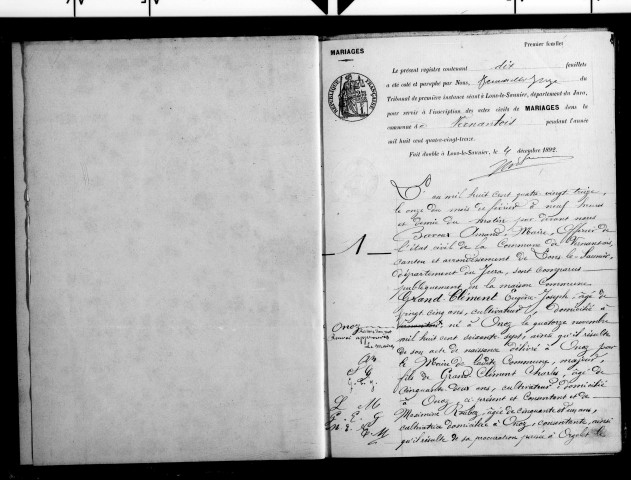 Premier feuillet
MARIAGES
Le présent registre contenant dix feuillets
a été coté et paraphé par Nous, du
Tribunal de première instance séant à Lons-le-Saunier, département du Jura,
pour servir à l'inscription des actes civils de MARIAGES dans la
commune de Vernantois pendant l'année
mil huit cent quatre-vingt-treize.
Fait double à Lons-le-Saunier, le 4 décembre 1892.
RÉPUBLIQUE FRANÇAISE
1
L'an mil huit cent quatre vingt treize,
le onze du mois de février à neuf heures
et demie du matin par devant nous
Bavoux Armand, Maire, officier de
l'état civil de la Commune de Vernantois,
canton et arrondissement de Lons le Saunier,
département du Jura, sont comparus
publiquement en la maison Commune
Grand-Clément Eugène Joseph, âgé de
vingt cinq ans, cultivateur, domicilié à
né à Onoz le quatorze novembre
mil huit cent soixante sept, ainsi qu'il résulte
de son acte de naissance délivré à Onoz par
le Maire de ladite Commune, majeur,
fils de Grand Clément Charles, âgé de
cinquante deux ans, cultivateur domicilié
à Onoz, ci présent et consentant et de
Maximine Roubez, âgée de cinquante et un ans,
cultivatrice domiciliée à Onoz, consentante, ainsi
qu'il résulte de sa procuration passée à Orgelet le
Onoz
L. M
F. E. G
N. E. E M